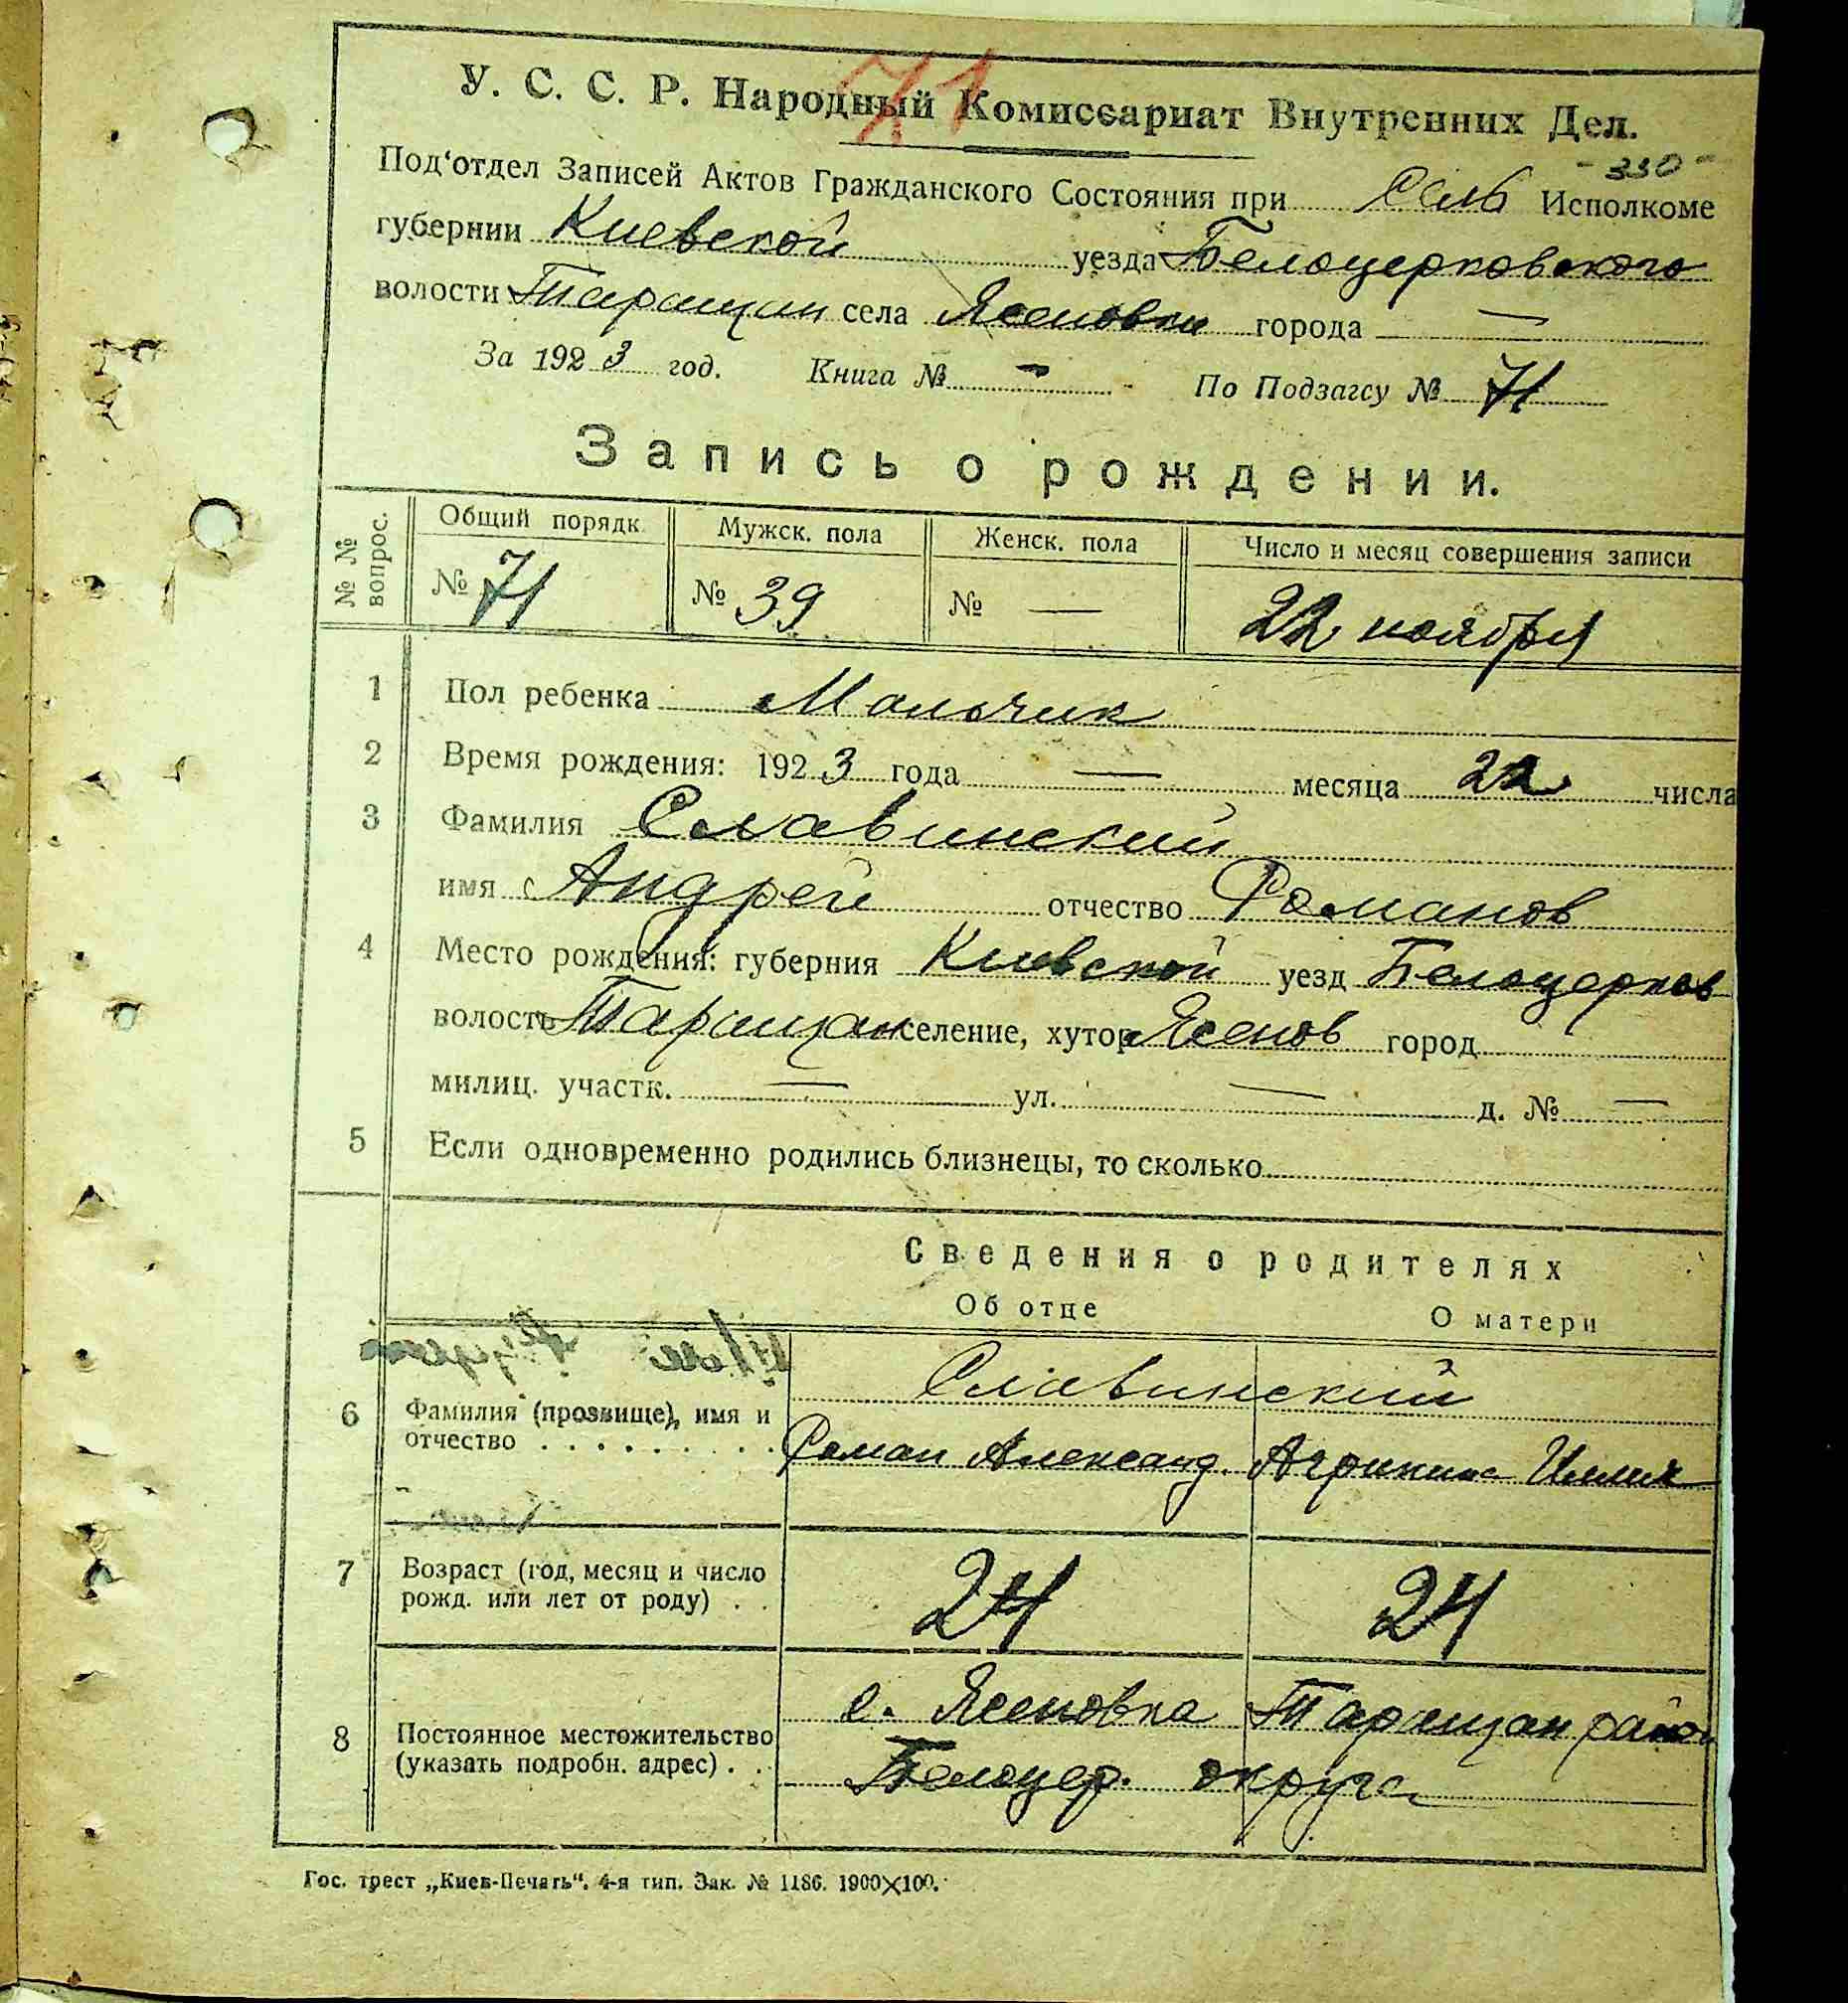 71
У. С. С. Р. Народный Комиссариат Внутренних Дел.
- 330 -
Под'отдел Записей Актов Гражданского Состояния при Сель Исполкоме
губернии Киевской уезда Белоцерковского
волости Таращан села Ясеновки города —
За 1923 год. Книга № — По Подзагсу № 71
Запись о рождении.
№ № вопрос. Общий порядк. Мужск. пола Женск. пола Число и месяц совершения записи
№ 71 № 39 № — 22 ноября
1 Пол ребенка Мальчик
2 Время рождения: 1923 года — месяца 22 числа
3 Фамилия Славинский
имя Андрей отчество Романов
4 Место рождения: губерния Киевской уезд Белоцерков
волость Таращан селение, хутор Ясенов город
милиц. участк. — ул. — д. № —
5 Если одновременно родились близнецы, то сколько
Сведения о родителях
Об отце О матери
Славинский
6 Фамилия (прозвище), имя и
отчество . . . . . . . . . Роман Александ. Агрипина
7 Возраст (год, месяц и число
рожд. или лет от роду) . . 24 24
с. Ясеновка Таращан район
8 Постоянное местожительство
(указать подробн. адрес) . . Белоцер. округа
Гос. трест „Киев-Печать". 4-я тип. Зак. № 1186. 1900×100.